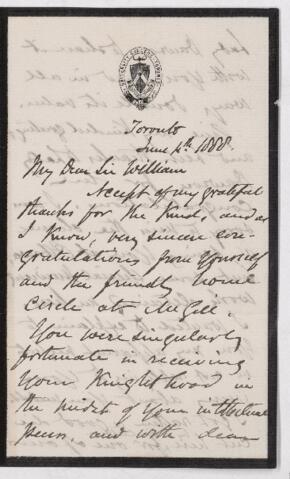 UNIVERSITY COLLEGE TORONTO
Toronto
June 4th 1888.
My Dear Sir William
Accept of my grateful
thanks for the kind, and as
I know, very sincere con-
gratulations from yourself
and the friendly home
circle at McGill.
You were singularly
fortunate in receiving
your Knighthood in
the midst of your intellectual
peers and with dear